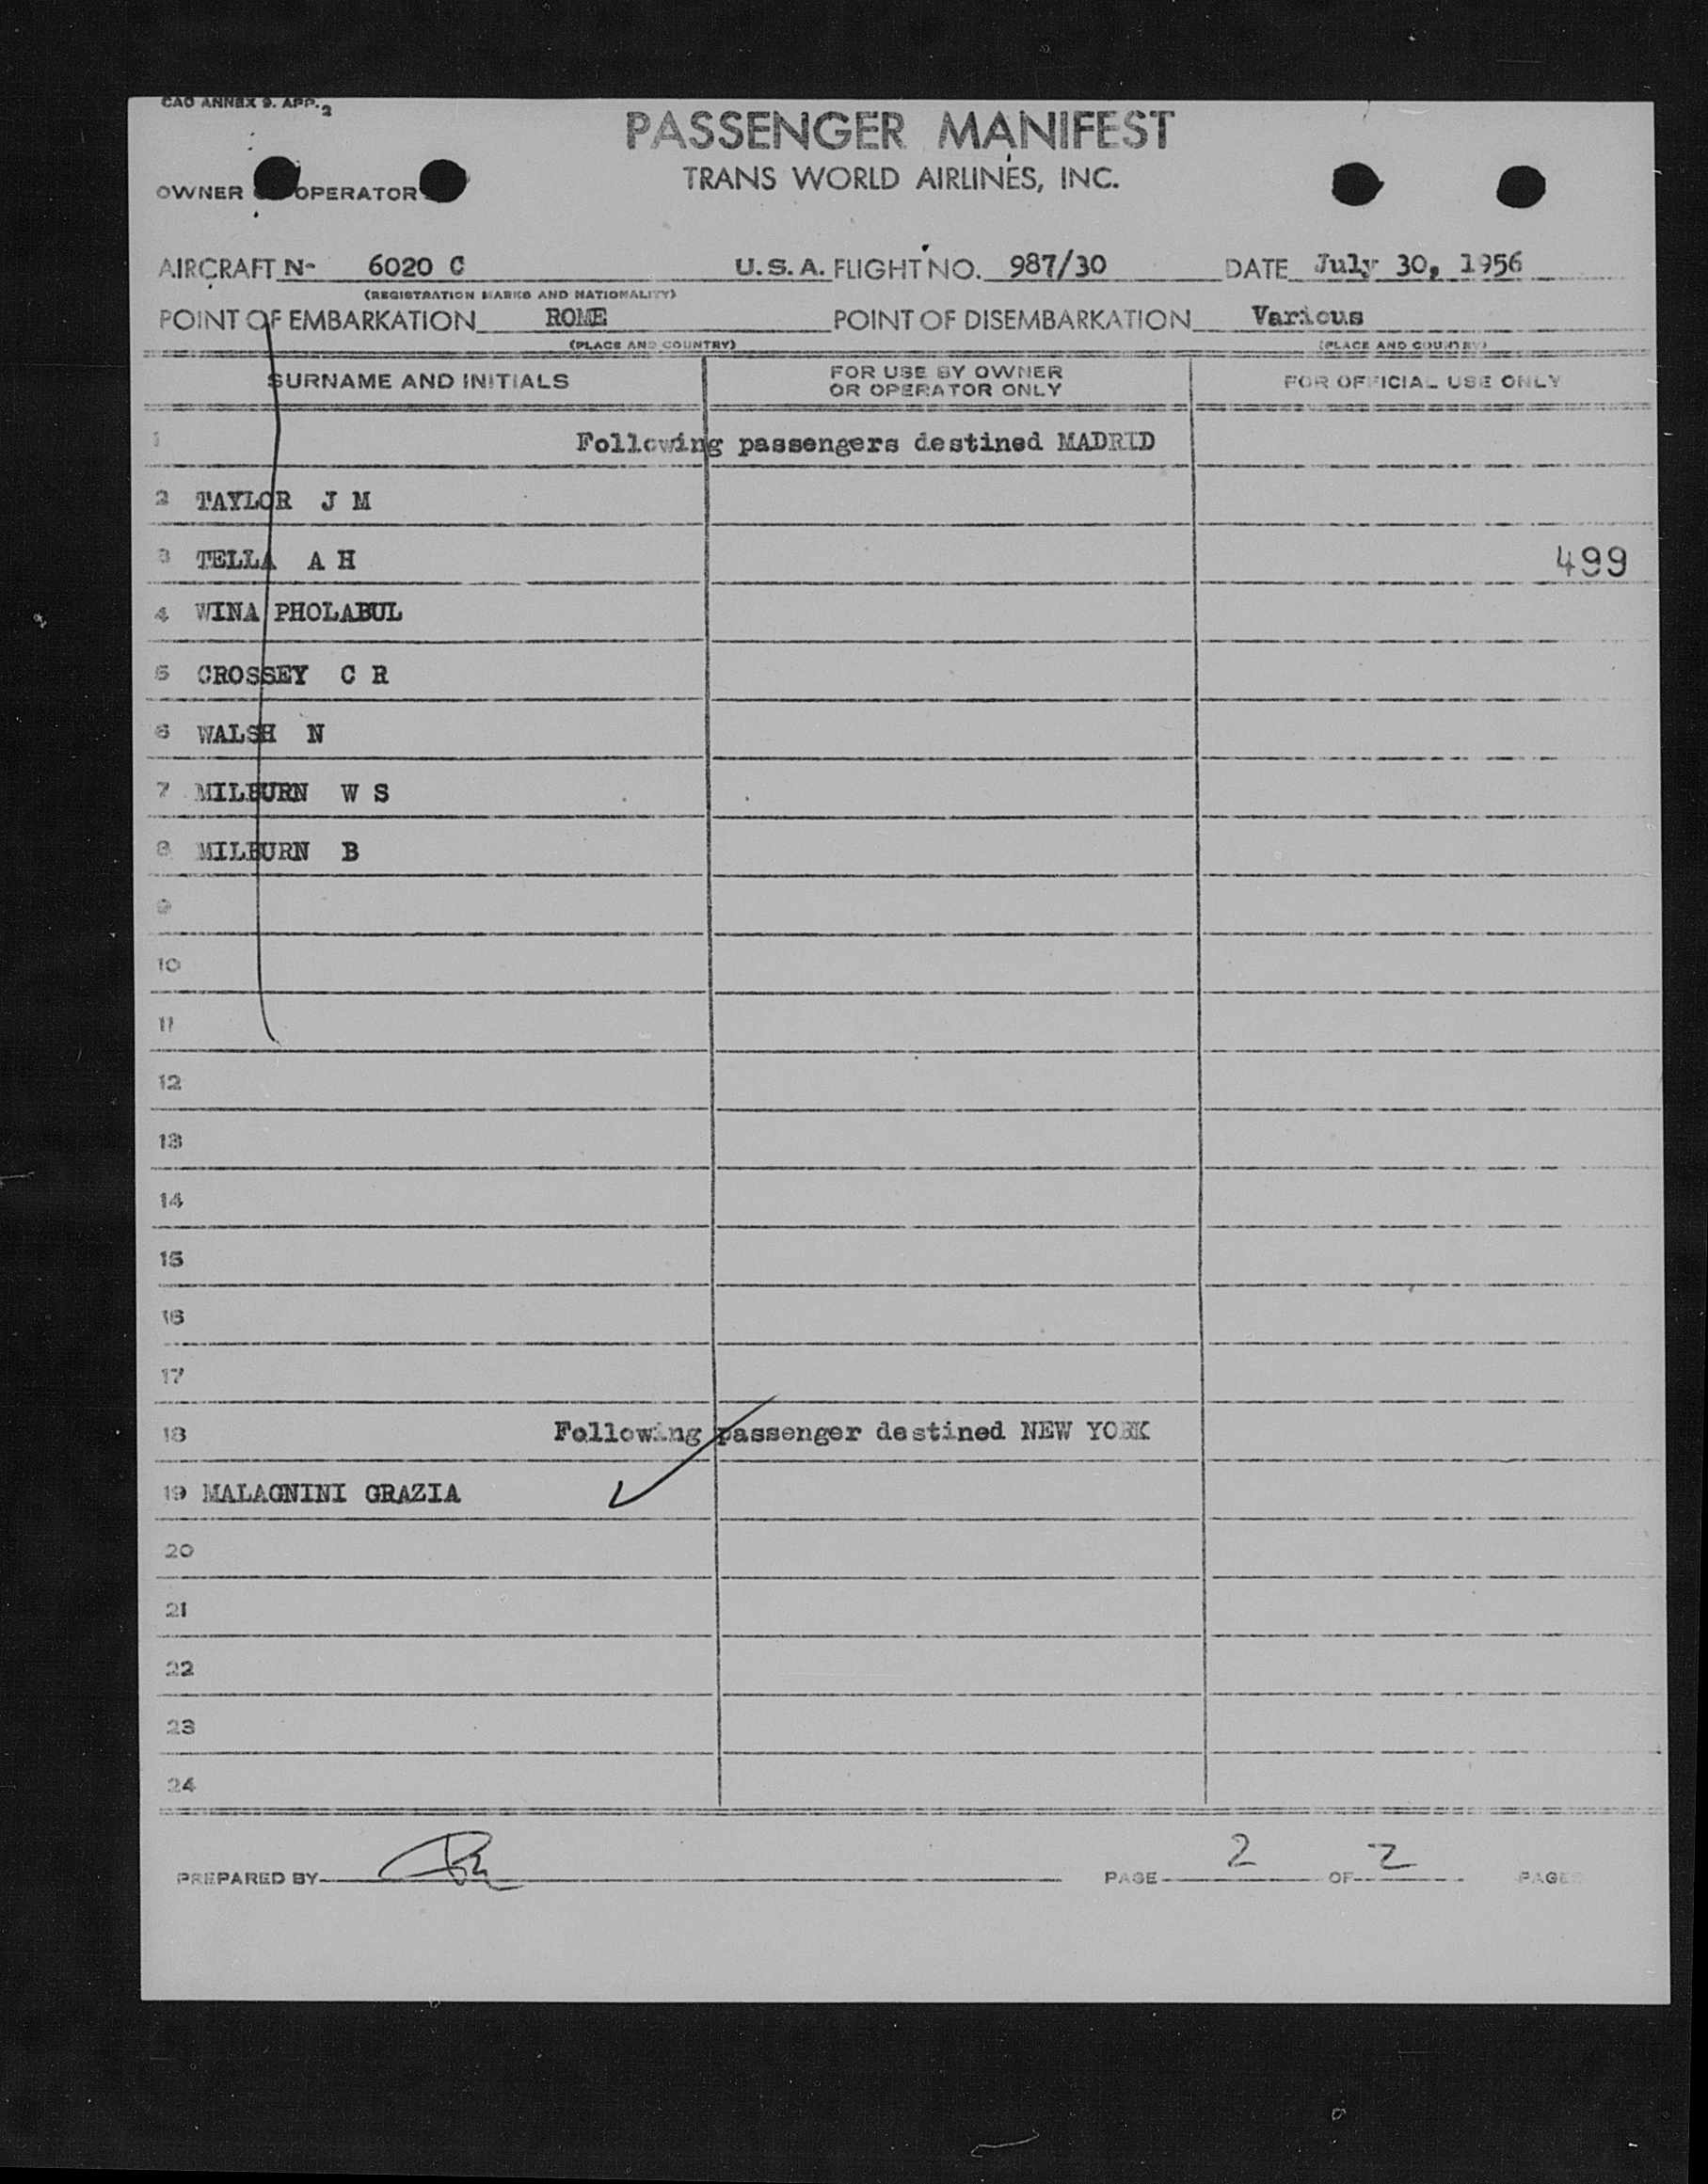 CAO ANNEX 9. APP. 2
PASSENGER MANIFEST
TRANS WORLD AIRLINES, INC.
OWNER OPERATOR
AIRCRAFT N- 6020 C U.S.A. FLIGHT NO. 987/30 DATE July 30, 1956
(REGISTRATION MARKS AND NATIONALITY)
POINT OF EMBARKATION ROME POINT OF DISEMBARKATION Various
(PLACE AND COUNTRY) (PLACE AND COUNTRY)
SURNAME AND INITIALS FOR USE BY OWNER OR OPERATOR ONLY FOR OFFICIAL USE ONLY
1 Following passengers destined MADRID
2 TAYLOR J M
3 TELLA A H 499
4 WINA PHOLABUL
5 CROSSEY C R
6 WALSH N
7 MILBURN W S
8 MILBURN B
9
10
11
12
13
14
15
16
17
18 Following passenger destined NEW YORK
19 MALAGNINI GRAZIA
20
21
22
23
24
PREPARED BY PAGE 2 OF 2 PAGES